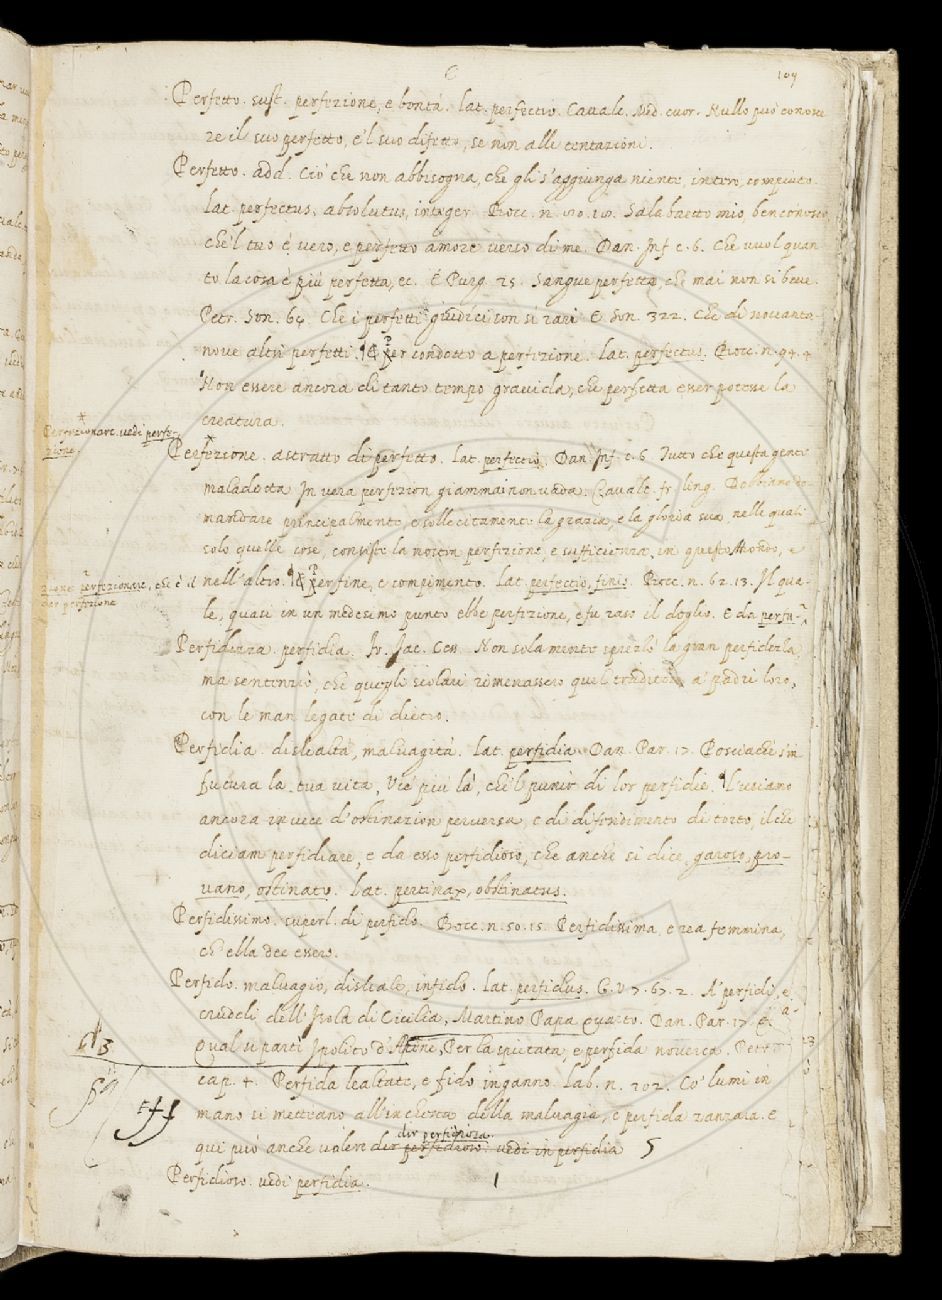 107
Perfetto. sust. perfezione, e bontà. lat. perfectio. Cavalc. Med. cuor. Nullo può conosce
re il suo perfetto, e 'l suo difetto, se non alle tentazioni.
Perfetto. add. Ciò che non abbisogna, che gli s'aggiunga niente, intero, compiuto.
lat. perfectus, absolutus, integer. Bocc. n. 80. Salabaetto mio, ben conosco,
che 'l tuo è vero, e perfetto amore verso di me. Dan. Inf. c. 6. Che vuol quan
to la cosa è più perfetta, ec. E Purg. 25. Sangue perfetto, che mai non si beve.
Petr. Son. 64. Che i perfetti giudici son sì rari. E Son. 322. Che di novanta-
nove altri perfetti. ¶ E per condotto a perfezione. lat. perfectus. Bocc. n. 94. 4
Non essere ancora di tanto tempo gravida, che perfetta esser potesse la
creatura.
Perfezionare. vedi perfe-
zione.
Perfezione. astratto di perfetto. lat. perfectio. Dan. Inf. c. 6. Tutto che questa gente
maladetta In vera perfezion giammai non vada. Cavalc. fr. ling. Dobbiamo do-
mandare principalmente, e sollecitamente la grazia, e la gloria sua nelle quali
solo quelle cose, consiste la nostra perfezione, e sufficienza, in questo Mondo, e
nell'altro. ¶ E per fine, e compimento. lat. perfectio, finis. Bocc. n. 62. 13. Il qua-
zione perfezionare, che è il
dar perfezione
le, quasi in un medesimo punto ebbe perfezione, e fu raso il doglio. E da perfe-
Perfidezza. perfidia. Fr. Jac. Cess. Non solamente sprezzò la gran perfidezza,
ma sentenziò, che quegli scolari rimenassero quel traditore a' padri loro,
con le man legate di dietro.
Perfidia. dislealtà, malvagità. lat. perfidia. Dan. Par. 17. Posciachè s'in
futura la tua vita, Vie più là, che 'l punir di lor perfidie. ¶ L'usiamo
ancora in vece d'ostinazion perversa, e di difendimento di torto, il che
diciam perfidiare, e da esso perfidioso, che anche si dice, garoso, pro-
vano, ostinato. lat. pertinax, obstinatus.
Perfidissimo. superl. di perfido. Bocc. n. 50. 15. Perfidissima, e rea femmina,
ch'ella dee essere.
Perfido. malvagio, disleale, infido. lat. perfidus. G. V. 7. 67. 2. A' perfidi, e
crudeli dell'Isola di Cicilia, Martino Papa quarto. Dan. Par. 17.
Qual si partì Ipolito d'Atene, Per la spietata, e perfida noverca. Petr.
cap. 4. Perfida lealtate, e fido inganno. Lab. n. 202. Co' lumi in
mano si metteano all'inchesta della malvagia, e perfida zanzara. E
qui può anche valere dir perfidiosa. vedi in perfidia
Perfidioso. vedi perfidia.